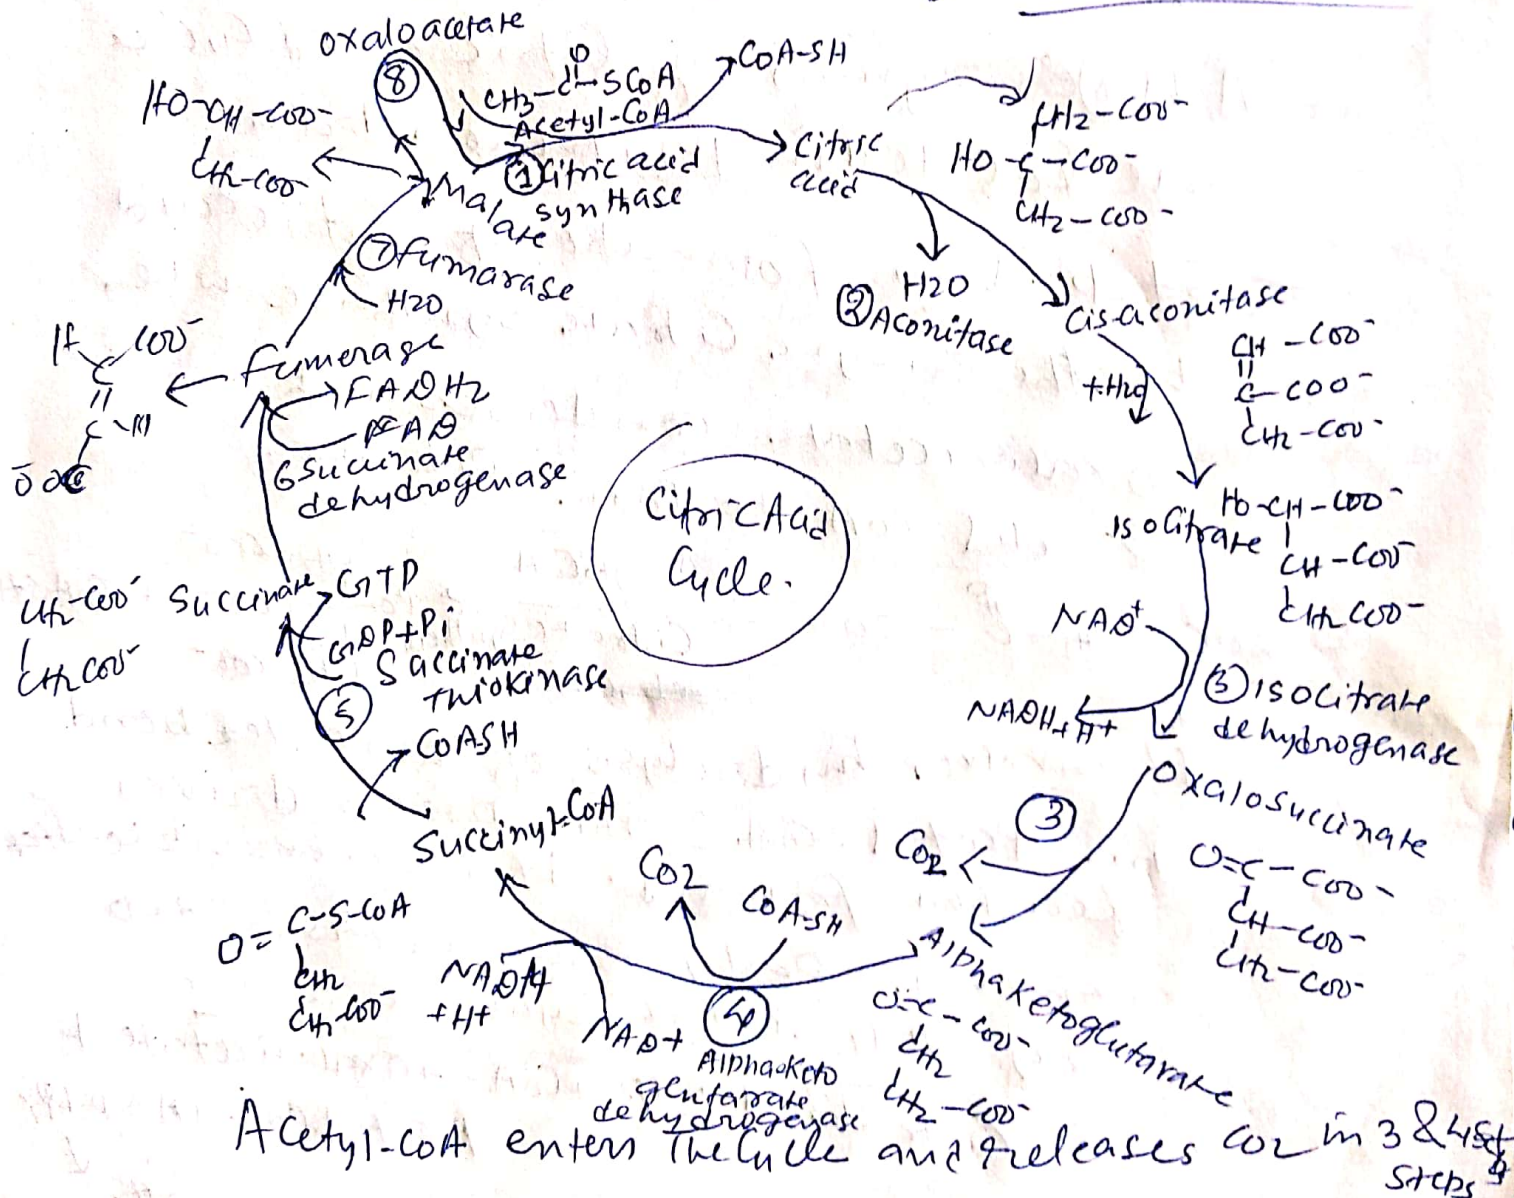 oxaloacetate
8
O
CH3-C-SCoA
Acetyl-CoA
CoA-SH
1 Citric acid
synthase
Citric
acid
CH2-COO-
HO-C-COO-
CH2-COO-
HO-CH-COO-
CH2-COO-
Malate
7 fumarase
H2O
H2O
2 Aconitase
Cis-aconitase
CH-COO-
C-COO-
CH2-COO-
+H2O
H COO-
C
C H
-OOC
Fumerase
FADH2
FAD
6 Succinate
dehydrogenase
Citric Acid
Cycle.
Isocitrate
HO-CH-COO-
CH-COO-
CH2COO-
NAD+
NADH+H+
3 Isocitrate
dehydrogenase
CH2-COO-
CH2COO-
Succinate
GTP
GDP+Pi
Succinate
Thiokinase
5
CoASH
Succinyl-CoA
Oxalosuccinate
O=C-COO-
CH-COO-
CH2-COO-
3
CO2
CO2
CoA-SH
O=C-S-CoA
CH2
CH2-COO-
NADH
+H+
NAD+
4
Alpha-keto
glutarate
dehydrogenase
Alphaketoglutarate
O=C-COO-
CH2
CH2-COO-
Acetyl-CoA enters The Cycle and releases CO2 in 3 & 4
Steps